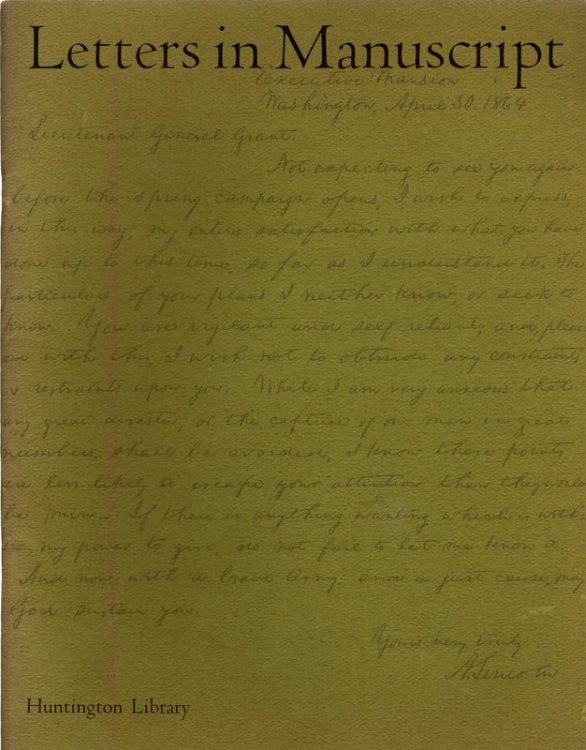 Letters in Manuscript
Executive Mansion
Washington, April 30. 1864
Lieutenant General Grant.
Not expecting to see you again
before the spring campaign opens, I wish to express,
in this way, my entire satisfaction with what you have
done up to this time, so far as I understand it. The
particulars of your plans I neither know, or seek to
know. You are vigilant and self reliant; and, pleas
ed with this, I wish not to obtrude any constraints
or restraints upon you. While I am very anxious that
any great disaster, or the capture of our men in great
numbers, shall be avoided, I know these points
are less likely to escape your attention than they would
be mine. If there is anything wanting which is with
in my power to give, do not fail to let me know it.
And now with a brave Army, and a just cause, may
God sustain you.
Yours very truly
A. Lincoln
Huntington Library